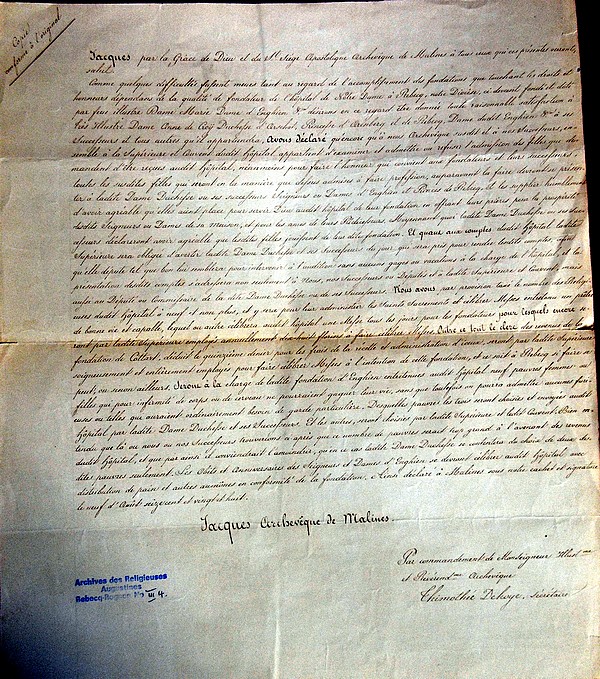 Copie
conforme à l'original
Jacques par la Grâce de Dieu et du St Siège Apostolique Archevêque de Malines à tous ceux qui ces présentes verront,
salut.
Comme quelques difficultés fussent meues tant au regard de l'accomplissement des fondations que touchant les droits et
honneurs dépendans de la qualité de fondateur de l'hôpital de Nôtre Dame à Rebecq, notre Diocèse, ci devant fondé et doté
par feue Illustre Dame Marie Dame d'Enghien &ca desirans en ce regard être donnée toute raisonnable satisfaction à
très Illustre Dame Anne de Croÿ Duchesse d'Arschot, Princesse d'Arenberg et de Rebecq, Dame dudit Enghien &ca à ses
Successeurs et tous autres qu'il appartiendra, avons déclaré qu'encore qu'à nous Archevêque susdit et à nos Successeurs, en-
semble à la Supérieure et Couvent dudit hôpital appartient d'examiner et admettre ou refuser l'admission de filles que de-
mandent d'être reçues audit hôpital, néanmoins pour faire l'honneur qui convient aux fondateurs et leurs successeurs,
toutes les susdites filles qui seront en la manière que dessus admises à faire profession, auparavant la faire devront se présen-
ter à ladite Dame Duchesse ou ses successeurs Seigneurs ou Dames d'Enghien et Princes de Rebecq, et les supplier humblement
d'avoir agréable qu'elles aient place pour servir Dieu audit hôpital de leur fondation en offrant leurs prières pour la prospérité
desdits Seigneurs ou Dames de sa Maison, et pour les ames de leurs Prédécesseurs. Moyennant quoi ladite Dame Duchesse ou ses Suc-
cesseurs déclareront avoir agréable que lesdites filles jouissent de leur dite fondation. Et quant aux comptes dudit hôpital ladite
Supérieure sera obligée d'avertir ladite Dame Duchesse et ses Successeurs du jour qui sera pris pour rendre lesdits comptes, afin
qu'elle députe tel que bon lui semblera pour intervenir à l'audition sans aucuns gages ou vacations à la charge de l'hôpital, et la
présentation desdits comptes s'adressera non seulement à Nous, nos Successeurs ou Députés et à ladite Supérieure et Couvent, mais
aussi au Député ou Commissaire de la dite Dame Duchesse ou de ses Successeurs. Nous avons par provision taxé le nombre des Religi-
euses dudit hôpital à neuf et non plus, et y sera pour leur administrer les Saints Sacrements et célébrer Messes entretenu un prêtre
de bonne vie et capable, lequel ou autre célébrera audit hôpital une Messe tous les jours pour les fondateurs
ront par ladite Supérieure employés annuellement à faire célébrer Messes. Outre ce tout le clerc des revenus de la
fondation de Collart, déduit le quinzième denier pour les frais de la recette et administration d'iceux, seront par ladite Supérieure
soigneusement et entièrement employés pour faire célébrer Messes à l'intention de cette fondation, et ce soit à Rebecq si faire se
peut, ou sinon ailleurs. Seront à la charge de ladite fondation d'Enghien entretenues audit hôpital neuf pauvres femmes ou
filles qui pour infirmité de corps ou de cerveau ne pourraient gagner leur vie, sans que toutefois on pourra admettre aucunes furi-
euses ou telles que auraient ordinairement besoin de garde particulière. Desquelles pauvres les trois seront choisies et envoyées audit
hôpital par ladite Dame Duchesse et ses Successeurs. Et les autres, seront choisies par ladite Supérieure et ledit Couvent. Bien en-
tendu que là où nous ou nos Successeurs trouverions ci après que ce nombre de pauvres serait trop grand à l'avenant des revenus
dudit hôpital, et que par ainsi il conviendrait l'amoindrir, qu'en ce cas ladite Dame Duchesse se contentera du choix de deux des-
dites pauvres seulement. Les Obits et Anniversaires des Seigneurs et Dames d'Enghien se devront célébrer audit hôpital avec
distribution de pain et autres aumônes en conformité de la fondation. Ainsi déclaré à Malines sous notre cachet et signature
le neuf d'Août seize cent et vingt et huit.
Jacques Archevêque de Malines.
Par commandement de Monseigneur Illust me
et Révérend me Archevêque
Thimothée Dehoye, Secrétaire
Archives des Religieuses
Augustines
Rebecq-Rognon No VI 4.